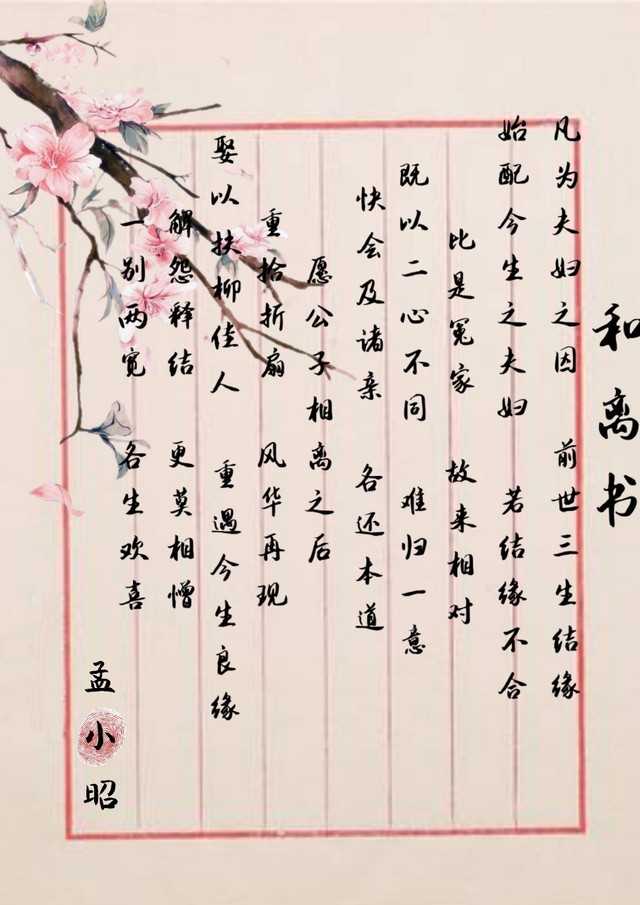 和离书
凡为夫妇之因 前世三生结缘
始配今生之夫妇 若结缘不合
比是冤家 故来相对
既以二心不同 难归一意
快会及诸亲 各还本道
愿公子相离之后
重拾折扇 风华再现
娶以扶柳佳人 重遇今生良缘
解怨释结 更莫相憎
一别两宽 各生欢喜
孟小昭